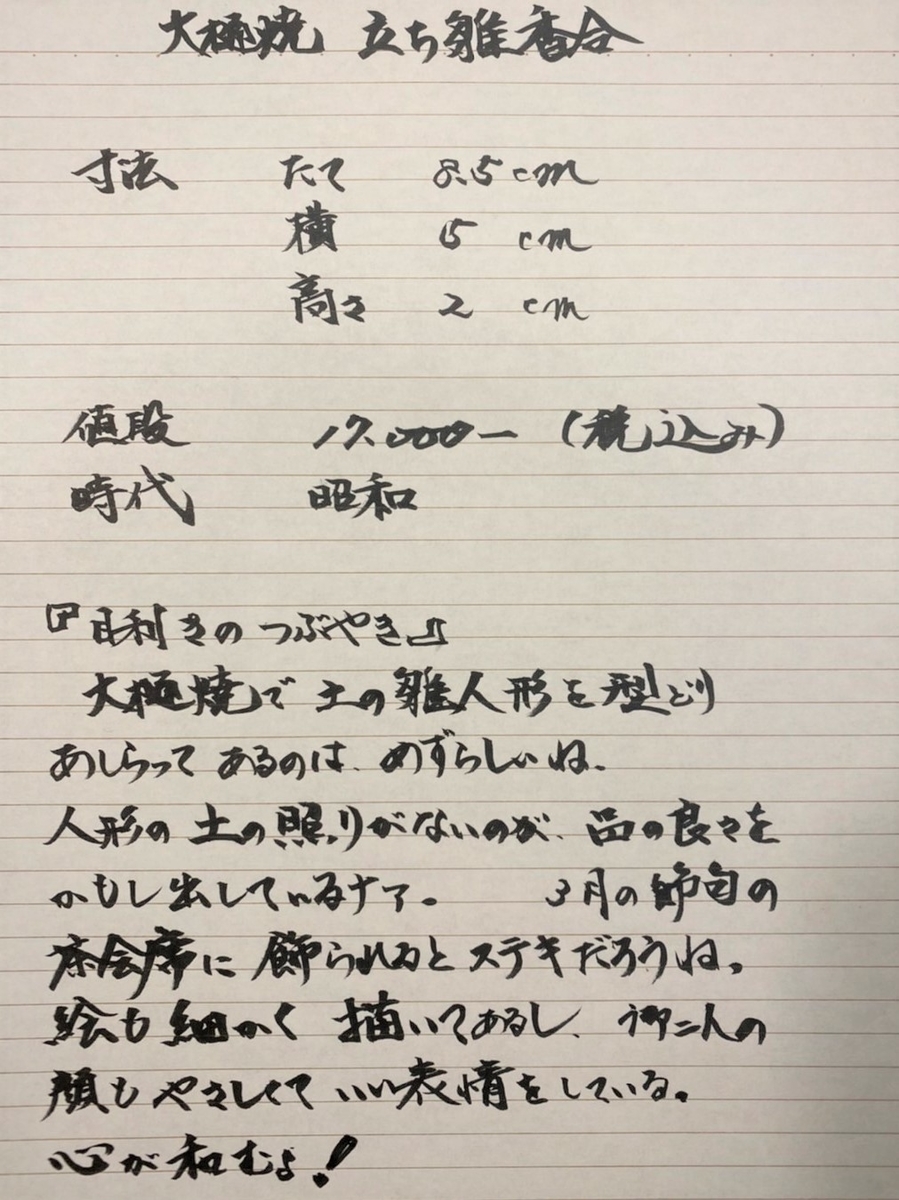 大極焼 立ち雛香合
寸法 たて 8.5cm
横 5 cm
高さ 2 cm
値段 17.000ー (税込み)
時代 昭和
『目利きのつぶやき』
大極焼で土の雛人形を型どり
あしらってあるのは、めずらしいね、
人形の土の照りがないのが、品の良さを
かもし出しているナァ。 3月の節句の
茶会席に飾られるとステキだろうね。
絵も細かく描いてあるし、御二人の
顔もやさしくていい表情をしている。
心が和むよ!